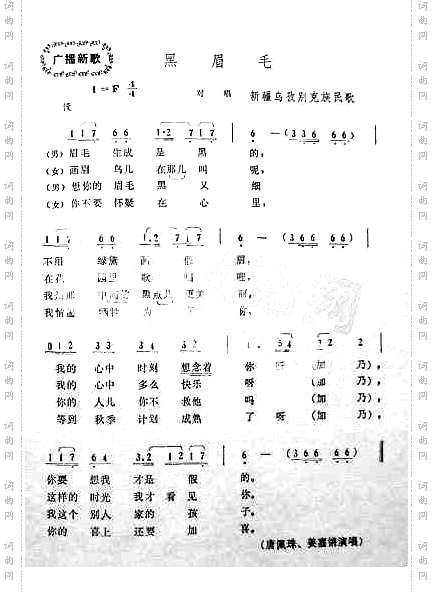 广播新歌
黑眉毛
1=F 4/4
对唱 新疆乌孜别克族民歌
1 1 7 6 6 1·2 7 1 7 6 — (3 6 6 6 6)
(男)眉毛 生成 是 黑 的,
(女)画眉 鸟儿 在那儿 叫 呢,
(男)想你的 眉毛 黑 又 细
(女)你不要 怀疑 在 心 里,
1 1 7 6 6 1·2 7 1 7 6 — (3 6 6 6 6)
不用 画 假 眉
在花 园里 歌 唱 哩,
我 那 黑点儿 更美 丽,
我 为 了 你
0 1 2 3 3 3 4 3 2 1. 3 4 3 2 2
我的 心中 时刻 想念着 你 呀 (加 乃),
我的 心中 多么 快乐 呀 (加 乃),
你的 人儿 你不 救他 吗 (加 乃),
等到 秋季 计划 成熟 了 呀 (加 乃),
1 1 7 6 4 3.2 1 2 1 7 6 — (3 6 6 6 6)
你要 想我 才是 假 的。
这样的 时光 我才 看 见 你。
我这个 别人 家的 孩 子。
你的 喜上 还要 加 喜。
(唐佩珠、姜嘉锵演唱)
词曲网